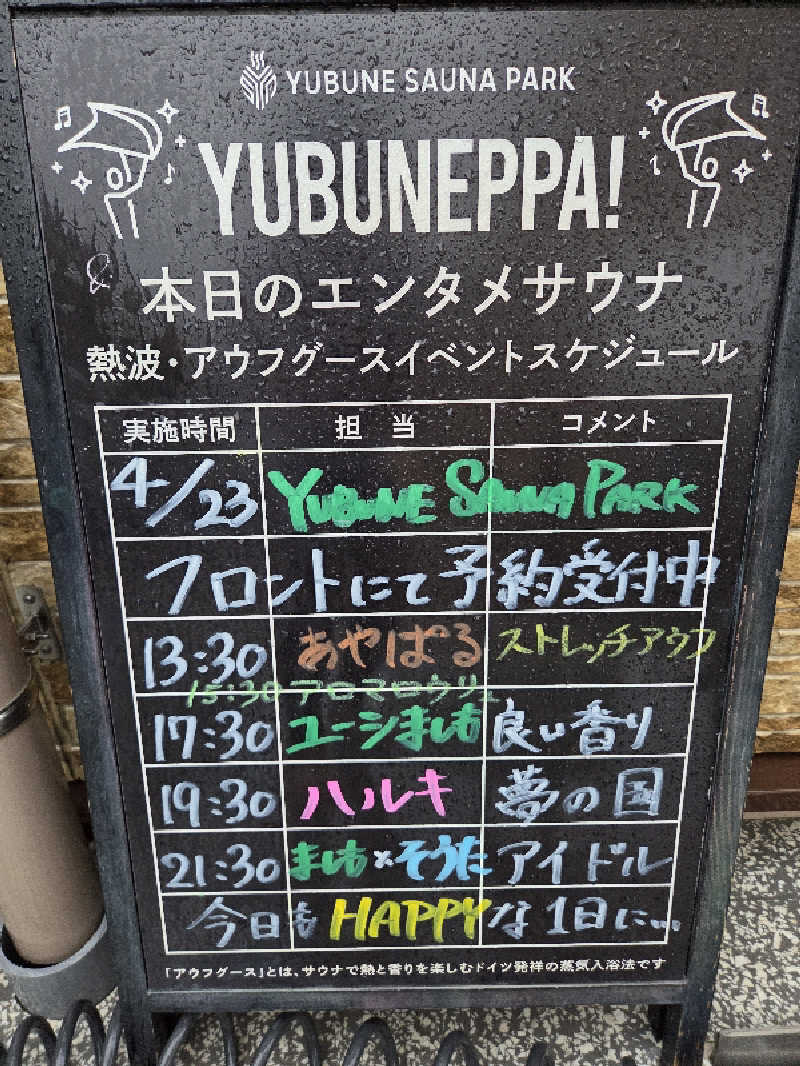 YUBUNE SAUNA PARK
YUBUNEPPA!
本日のエンタメサウナ
熱波・アウフグースイベントスケジュール
実施時間 担当 コメント
4/23 YUBUNE SAUNA PARK
フロントにて予約受付中
13:30 あやぱる ストレッチアウフ
15:30 アロマロウリュ
17:30 ユーシましも 良い香り
19:30 ハルキ 夢の国
21:30 ましも×そうた アイドル
今日も HAPPYな1日に...
「アウフグース」とは、サウナで熱と香りを楽しむドイツ発祥の蒸気入浴法です